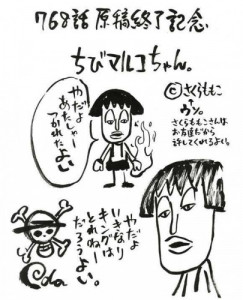 768話 原稿終了記念
ちびマルコちゃん。
やだよ
あたしゃー
つかれた
よい
©さくらももこ
↑
ウソ。
さくらももこさんは
お友達だから
許してくれるよい。
やだよ
いきなり
キングは
とれねー
だろうよい。
Oda